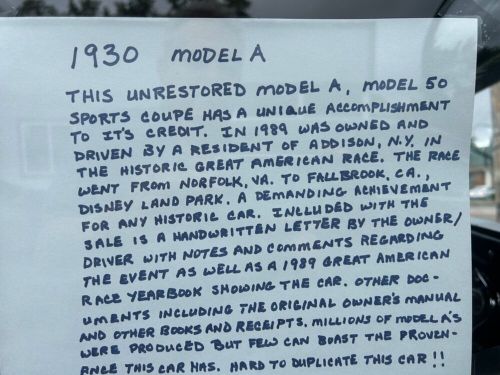 1930 MODEL A
THIS UNRESTORED MODEL A, MODEL 50
SPORTS COUPE HAS A UNIQUE ACCOMPLISHMENT
TO IT'S CREDIT. IN 1989 WAS OWNED AND
DRIVEN BY A RESIDENT OF ADDISON, N.Y. IN
THE HISTORIC GREAT AMERICAN RACE. THE RACE
WENT FROM NORFOLK, VA. TO FALLBROOK, CA.,
DISNEY LAND PARK. A DEMANDING ACHIEVEMENT
FOR ANY HISTORIC CAR. INCLUDED WITH THE
SALE IS A HANDWRITTEN LETTER BY THE OWNER/
DRIVER WITH NOTES AND COMMENTS REGARDING
THE EVENT AS WELL AS A 1989 GREAT AMERICAN
RACE YEARBOOK SHOWING THE CAR. OTHER DOC-
UMENTS INCLUDING THE ORIGINAL OWNER'S MANUAL
AND OTHER BOOKS AND RECEIPTS. MILLIONS OF MODEL A'S
WERE PRODUCED BUT FEW CAN BOAST THE PROVEN-
ANCE THIS CAR HAS. HARD TO DUPLICATE THIS CAR!!